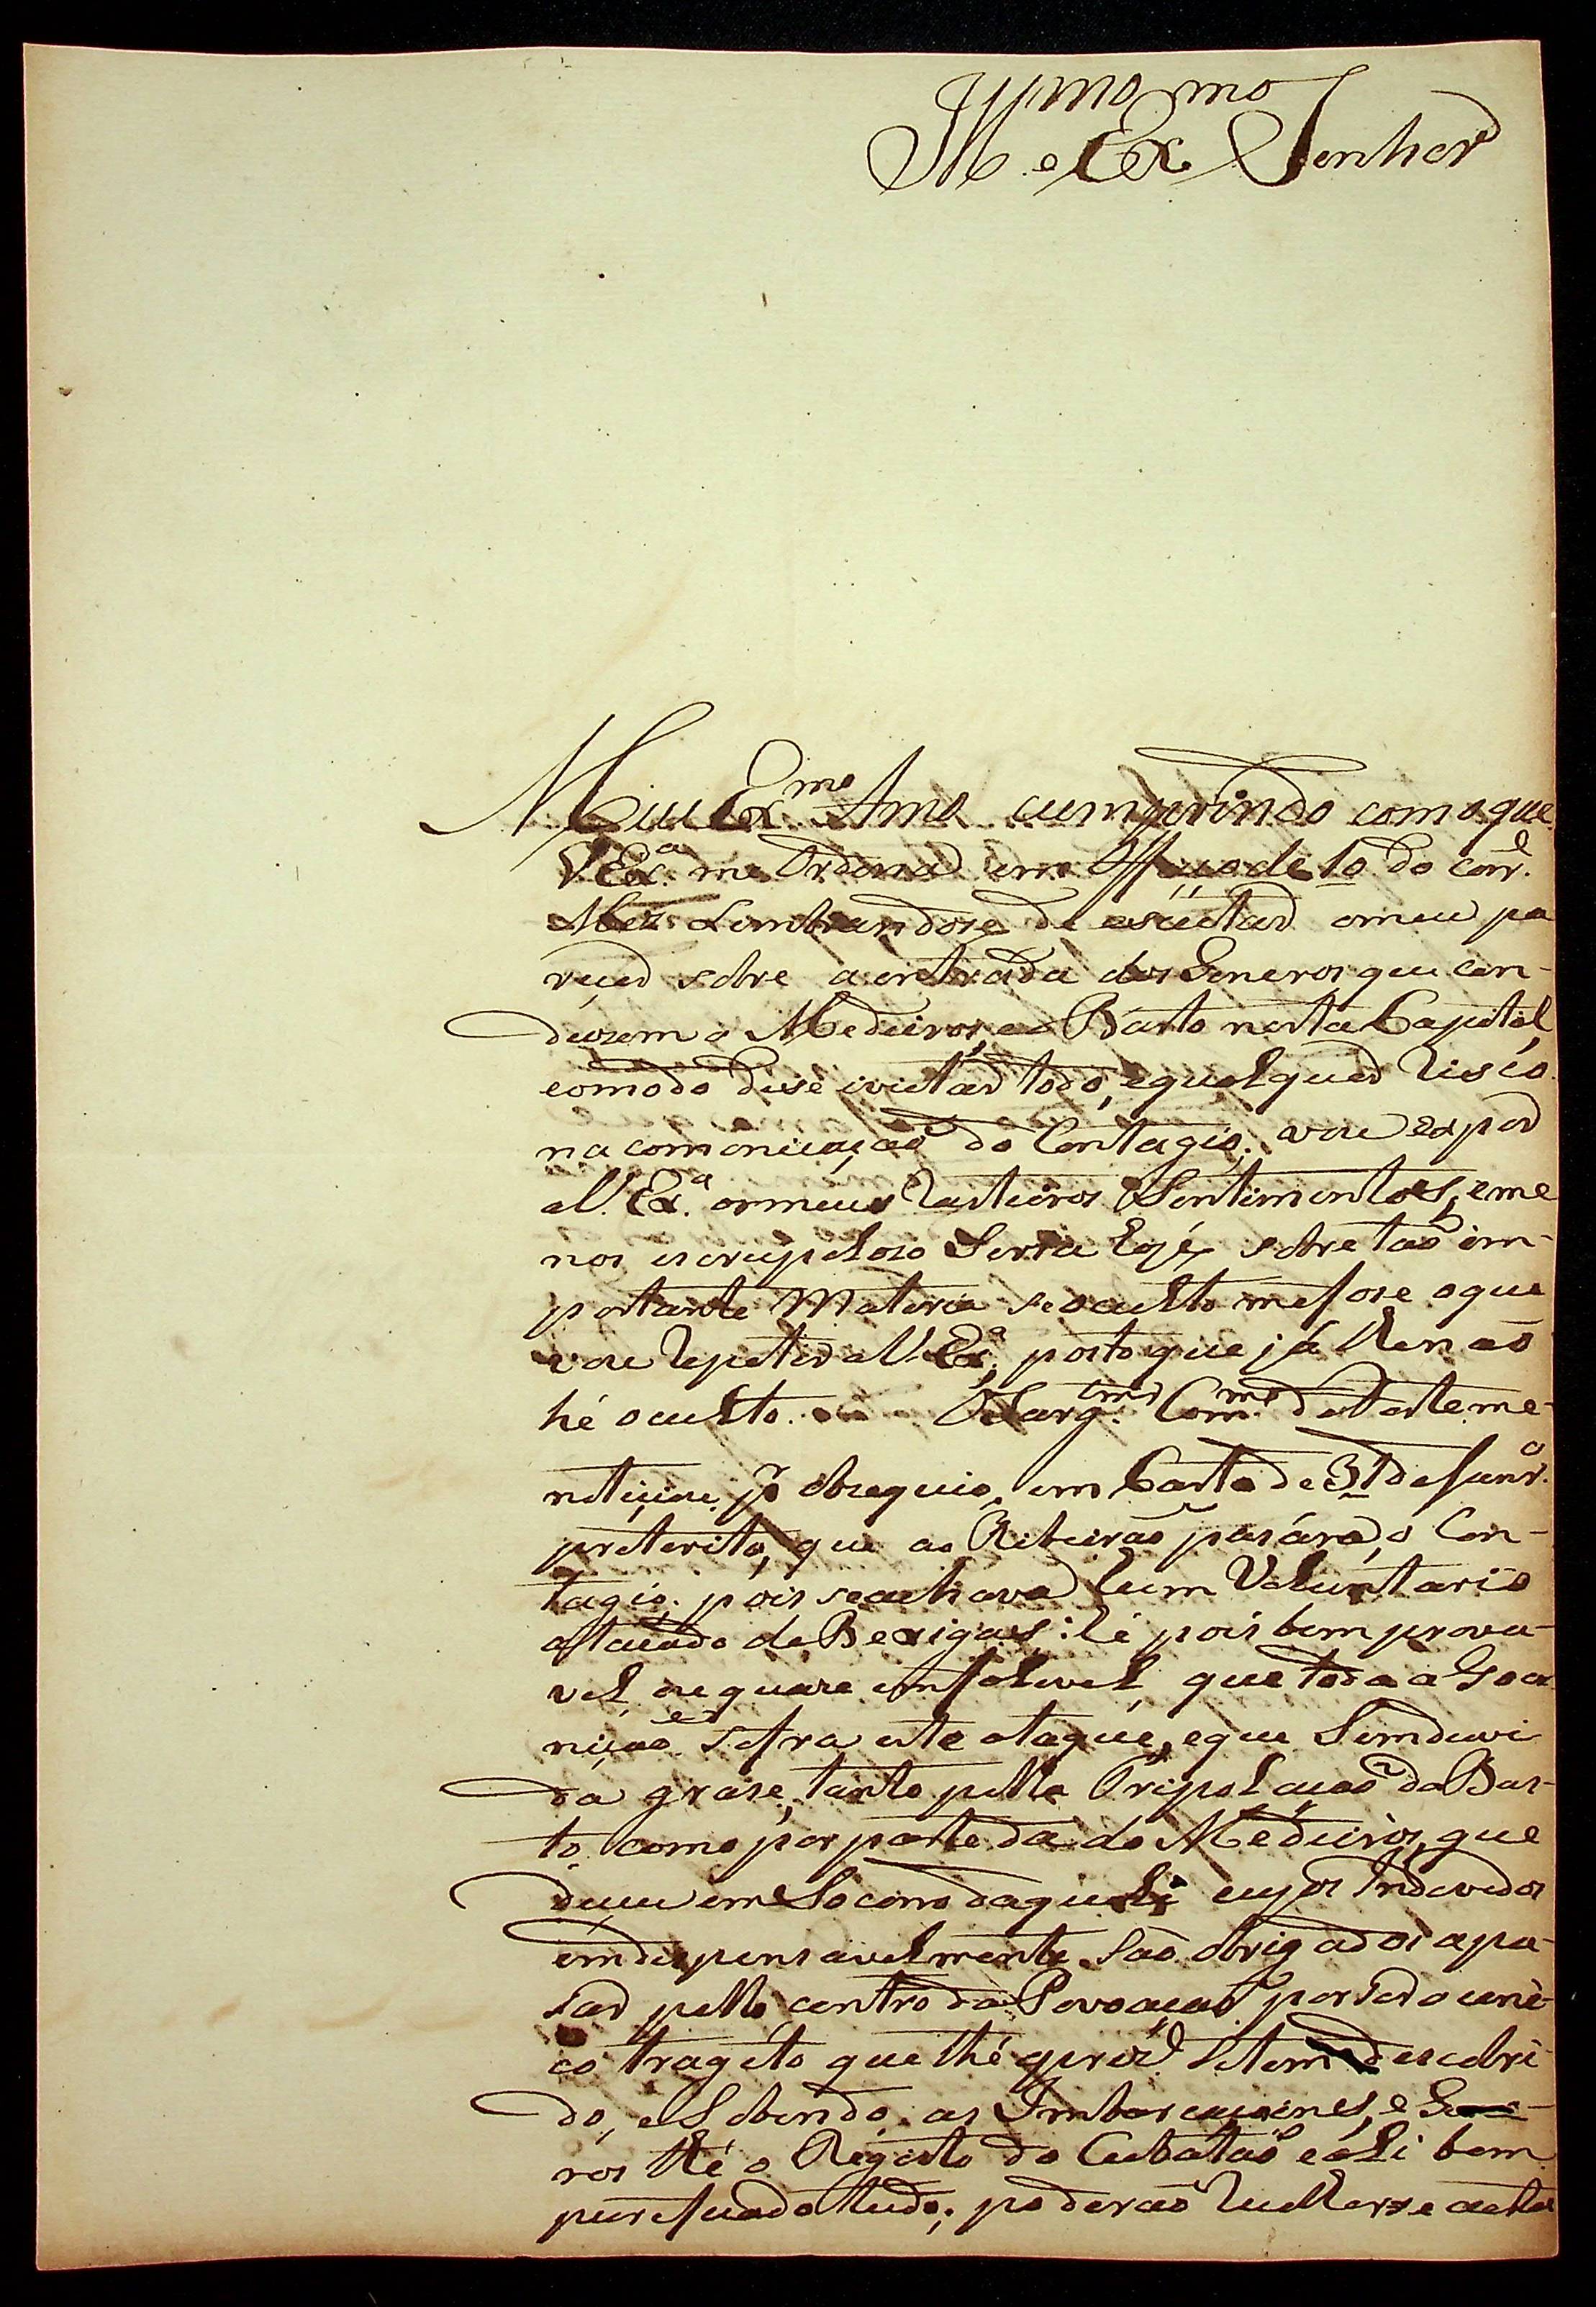 Illmo e Exmo Senhor
Meu Exmo Amo cumprindo com o que
V Exa me Ordena em Officio de 10 do corre
Mez Lembrandose de escuctar o meu pa
recer sobre a entrada dos Generos que con-
duzem o Medeiros, e Basto nesta Capital,
e o modo de se ivictar todo, e qualquer Risco
na comonicação do Contagio; vou expor
a V. Exa. os meus Rasteiros Sentimentos, e me
nos escrupeloso Seria hoje sobre tão im-
portante Materia se oculto me fose o que
vou Repetir a V. Exa, posto que já lhe não
hé oculto. O Sargto mor Comme da Forte me
noticiou por obzequio, em Carta de 31 de Janro
preterito, que ao Ribeirão pasára o Con-
tagio; pois se achava hum Voluntario
atacado de Bexigas: hé pois bem prova-
vel, e quaze emfalivel, que toda a Goar
nição sofra este ataque, e que Sem duvi
da grase, tanto pella Tripolação do Bas-
to, como por parte da do Medeiros, que
deceu em Socorro daquele cujos Indeviduos
emdespensavelmente são obrigados a pa-
sar pello centro da Povoação, por ser o uni-
co trageto que thé qui se tem descobri-
do, e Sobindo as Imbarcaçoines, e Gene-
ros thé o Registo do Cubatão e ali bem
purefuado tudo; poderão Recolherse a esta